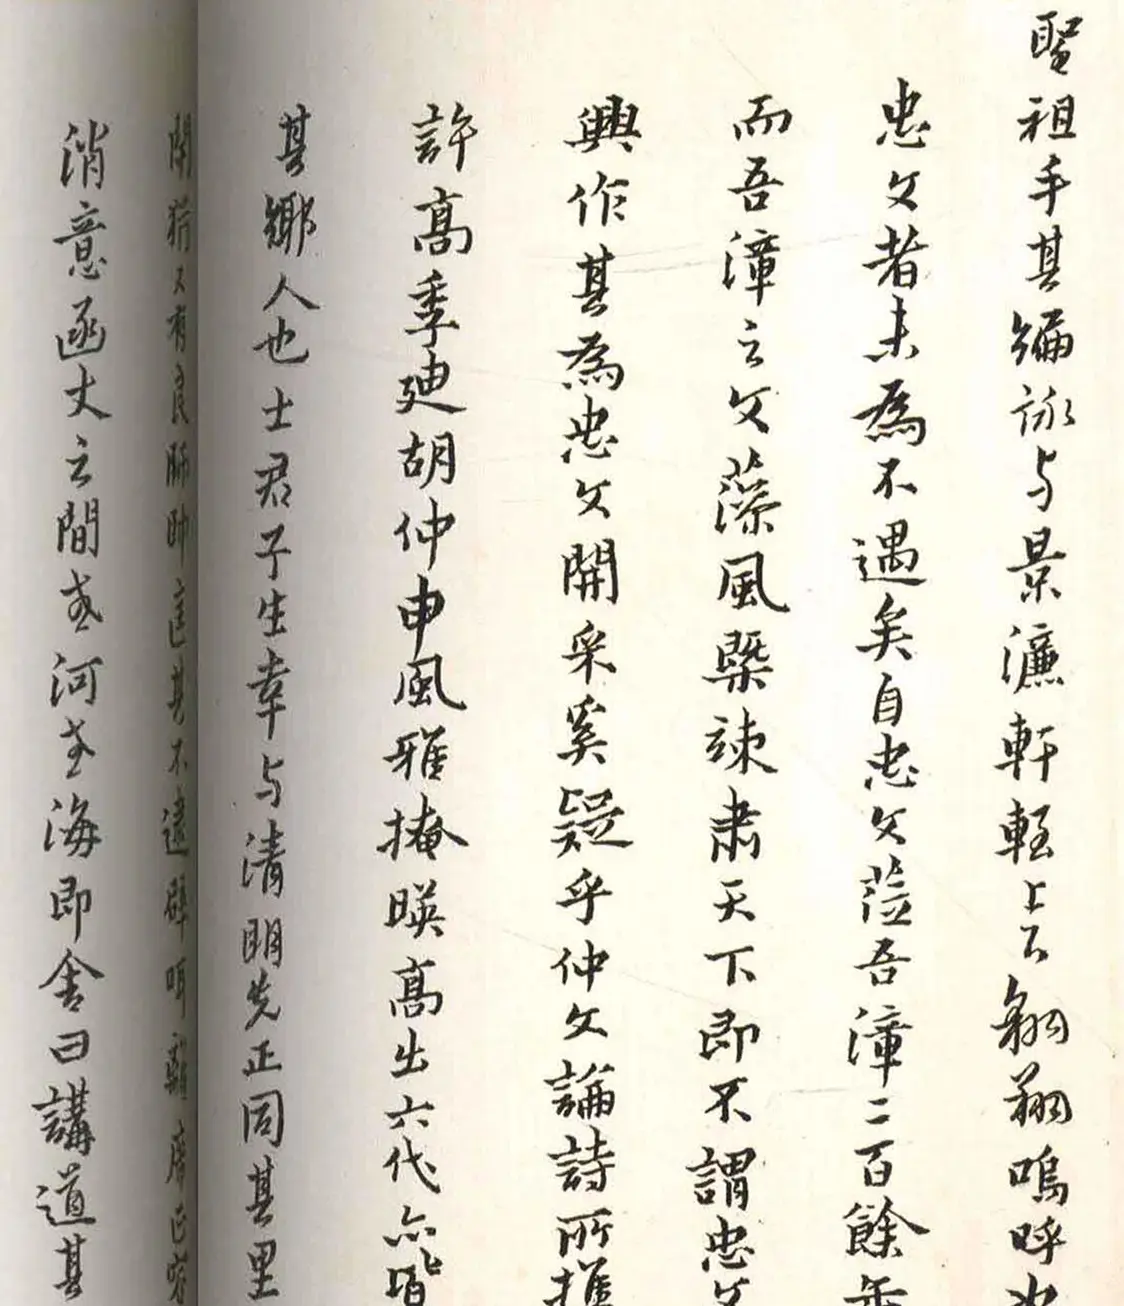 聖祖手其編詠与景濂軒輊上下翱翔嗚呼
忠文者未為不遇矣自忠文蒞吾漳二百餘年
而吾漳之文藻風槩竦肅天下即不謂忠文
興作其為忠文開采奚疑乎仲文論詩所推
許高季迪胡仲申風雅掩暎高出六代亦皆
其鄉人也士君子生幸与清明先正同其里
開猶又有良師帥其不遠
消意函丈之間或河或海即舍曰講道其